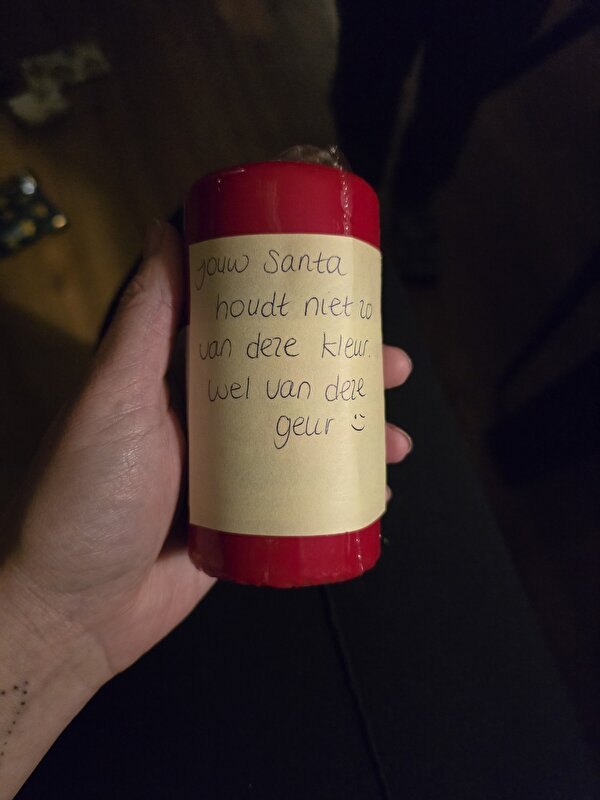 jouw Santa
houdt niet zo
van deze kleur.
wel van deze
geur :)